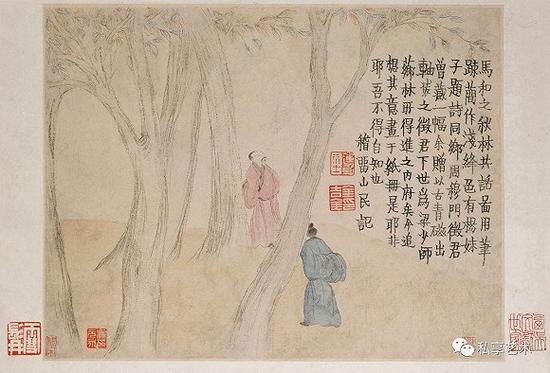 馬和之秋林共話啚用筆
踈蕑作淺絳色有楊妹
子題詩同鄉周穆門徵君
曾藏一幅余贈以古青磁出
軸裝之徵君下世為梁少師
薌林所得進之內府矣今追
想其意畫于紙冊是耶非
耶吾不得自知也
稽畱山民記
私享艺术